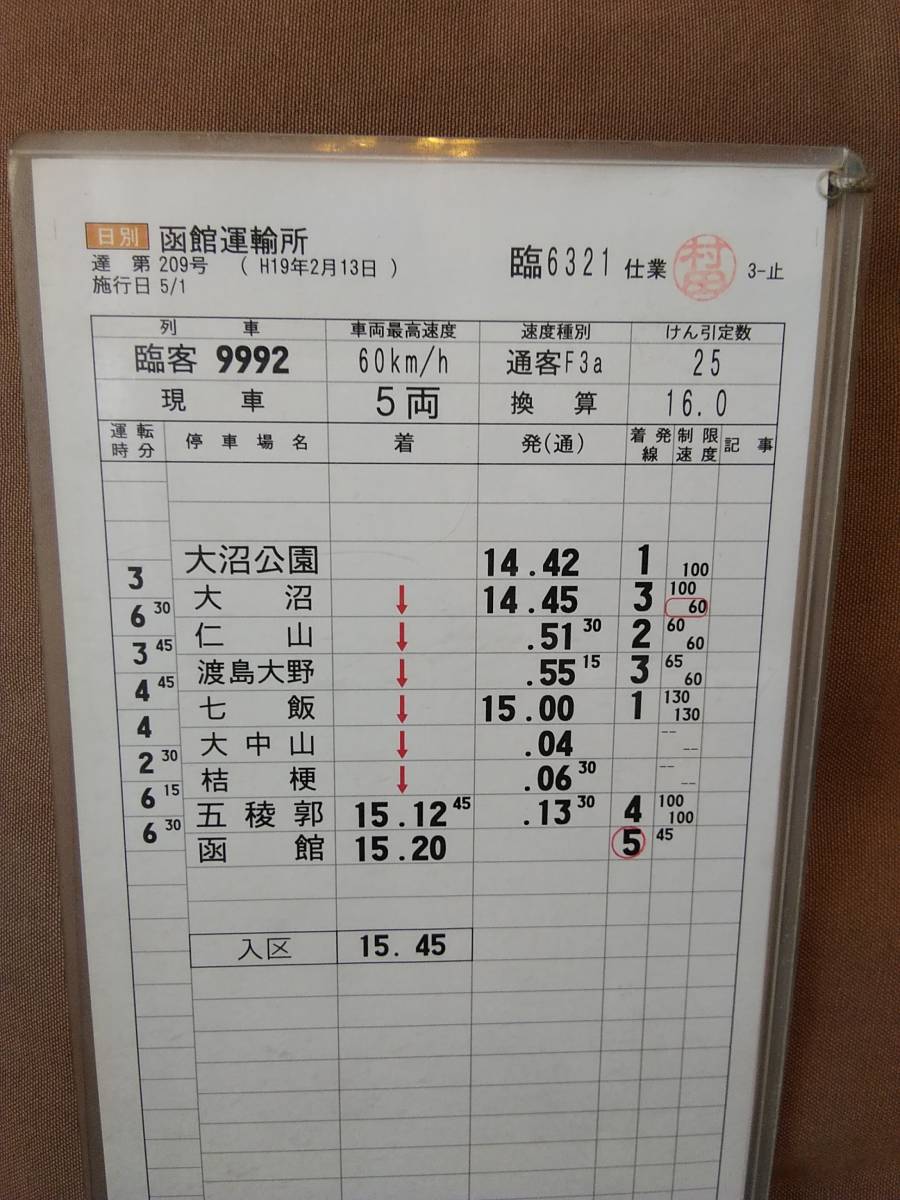 日別 函館運輸所
達 第 209号 ( H19年2月13日 )
施行日 5/1
臨6321 仕業 村田 3-止
列 車 車両最高速度 速度種別 けん引定数
臨客 9992 60km/h 通客F3a 25
現 車 5両 換 算 16.0
運転時分 停車場名 着 発(通) 着発線 制限速度 記事
大沼公園 14.42 1 100
3
大 沼 ↓ 14.45 3 100 60
6 30
仁 山 ↓ .51 30 2 60 60
3 45
渡島大野 ↓ .55 15 3 65 60
4 45
七 飯 ↓ 15.00 1 130 130
4
大中山 ↓ .04 -- --
2 30
桔 梗 ↓ .06 30 -- --
6 15
五稜郭 15.12 45 .13 30 4 100 100
6 30
函 館 15.20 5 45
入区 15.45